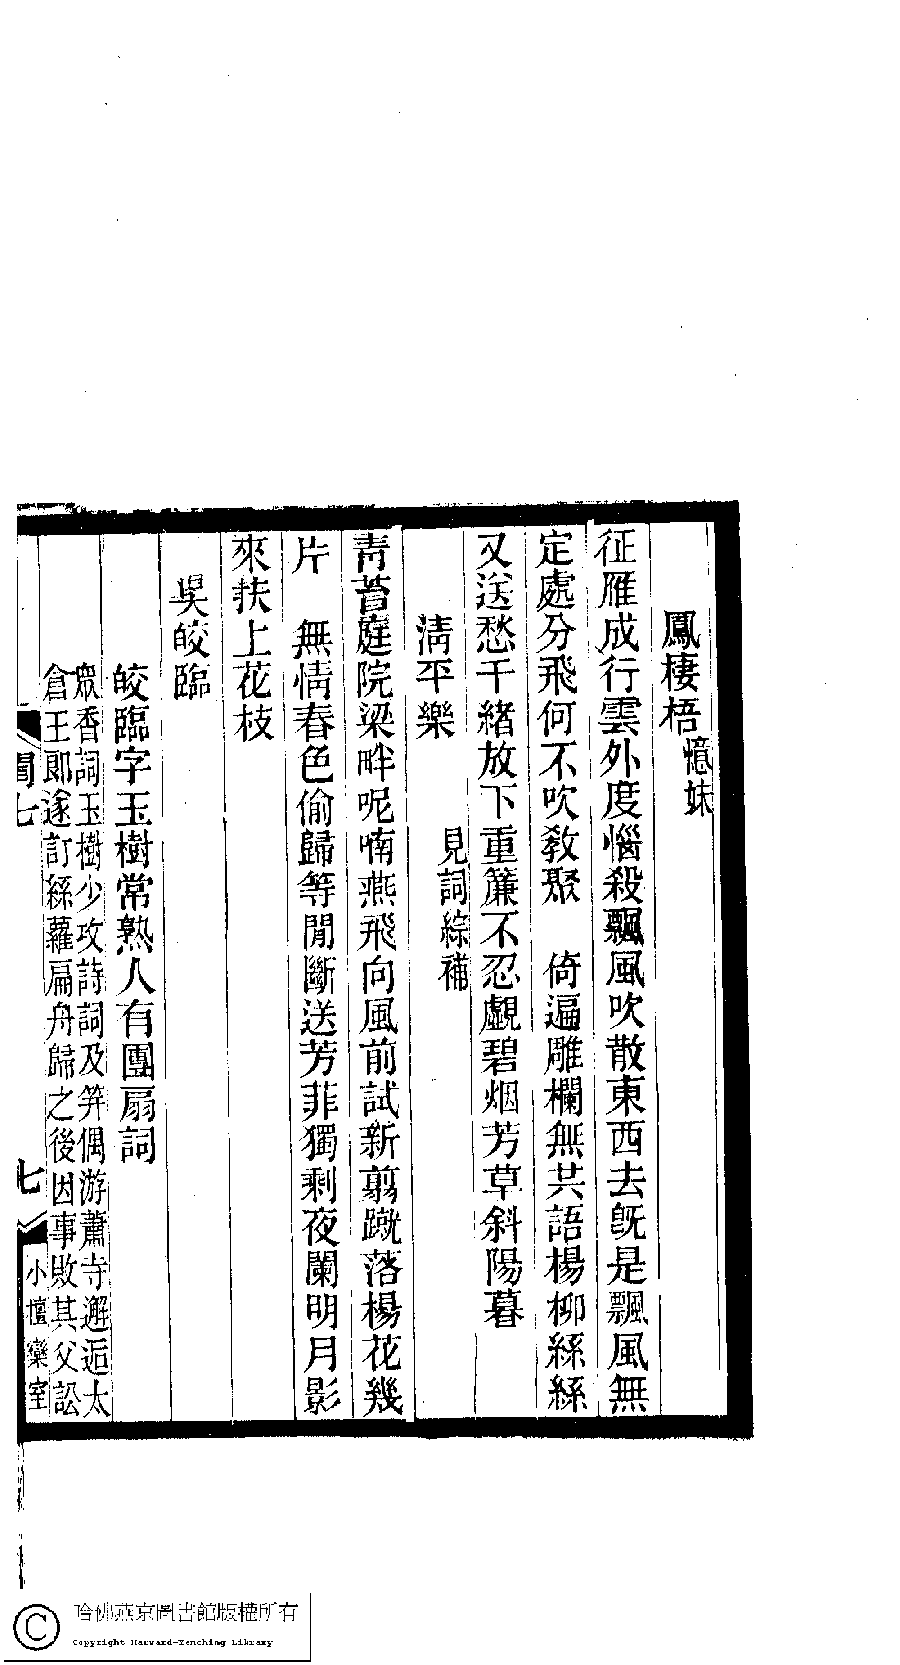 鳳棲梧憶妹
征雁成行雲外度惱殺飄風吹散東西去旣是飄風無
定處分飛何不吹敎聚　倚遍雕欄無共語楊柳絲絲
又送愁千緒放下重簾不忍覷碧烟芳草斜陽暮
淸平樂　見詞綜補
靑苔庭院梁畔呢喃燕飛向風前試新翦蹴落楊花幾
片　無情春色偷歸等閒斷送芳菲獨剩夜闌明月影
來扶上花枝
吳皎臨
皎臨字玉樹常熟人有團扇詞
眾香詞玉樹少攻詩詞及笄偶游蕭寺邂逅太
倉王郞遂訂絲蘿扁舟歸之後因事敗其父訟
閨七
七
小檀欒室
哈佛燕京圖書館版權所有
Copyright Harvard-Yenching Library